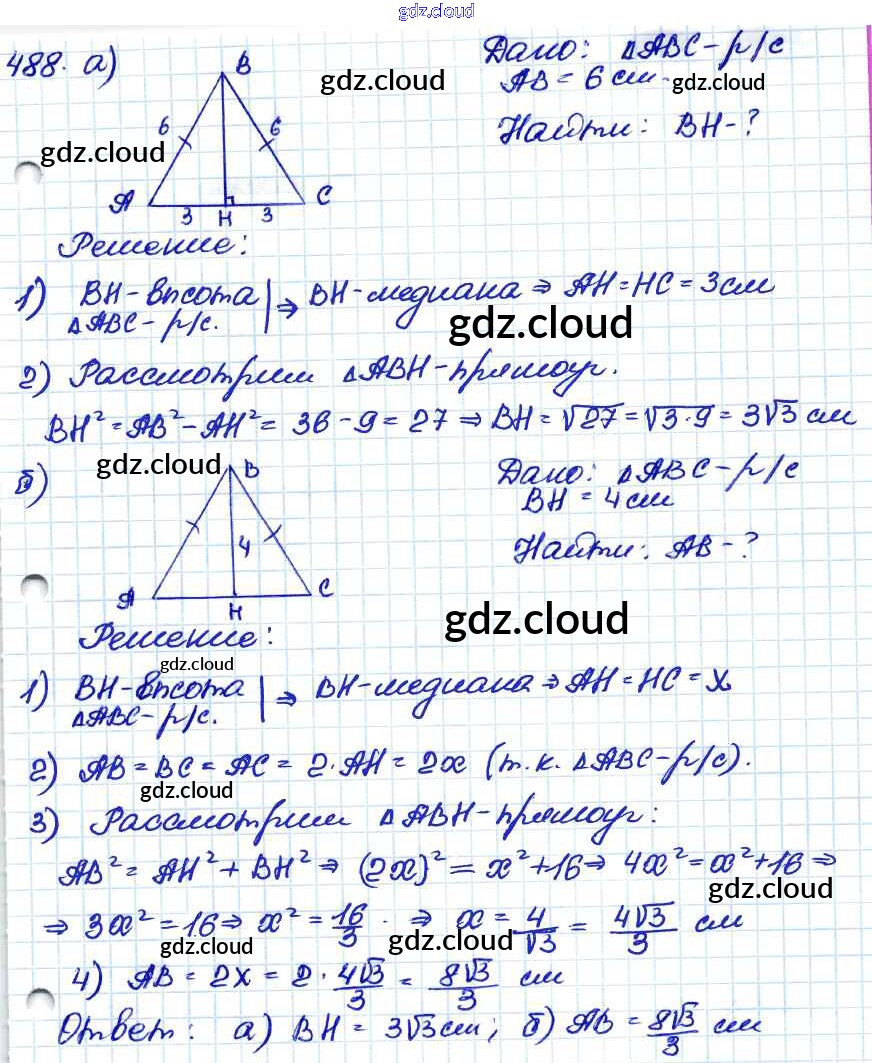 gdz.cloud
488. а) B Дано: △ABC - р/с
gdz.cloud AB = 6 см. gdz.cloud
6 6 Найти: BH - ?
gdz.cloud
A 3 H 3 C
Решение:
1) BH - высота | ⇒ BH - медиана ⇒ AH = HC = 3 см
△ABC - р/с.
gdz.cloud
2) Рассмотрим △ABH - прямоуг.
BH² = AB² - AH² = 36 - 9 = 27 ⇒ BH = √27 = √3·9 = 3√3 см
gdz.cloud
б) B Дано: △ABC - р/с
BH = 4 см
4 Найти: AB - ?
A H C
gdz.cloud
Решение:
gdz.cloud
1) BH - высота | ⇒ BH - медиана ⇒ AH = HC = x
△ABC - р/с.
2) AB = BC = AC = 2·AH = 2x (т.к. △ABC - р/с).
gdz.cloud
3) Рассмотрим △ABH - прямоуг:
AB² = AH² + BH² ⇒ (2x)² = x² + 16 ⇒ 4x² = x² + 16 ⇒
gdz.cloud
⇒ 3x² = 16 ⇒ x² = 16/3 · ⇒ x = 4/√3 = 4√3/3 см
gdz.cloud gdz.cloud
4) AB = 2x = 2 · 4√3/3 = 8√3/3 см
Ответ: а) BH = 3√3 см; б) AB = 8√3/3 см